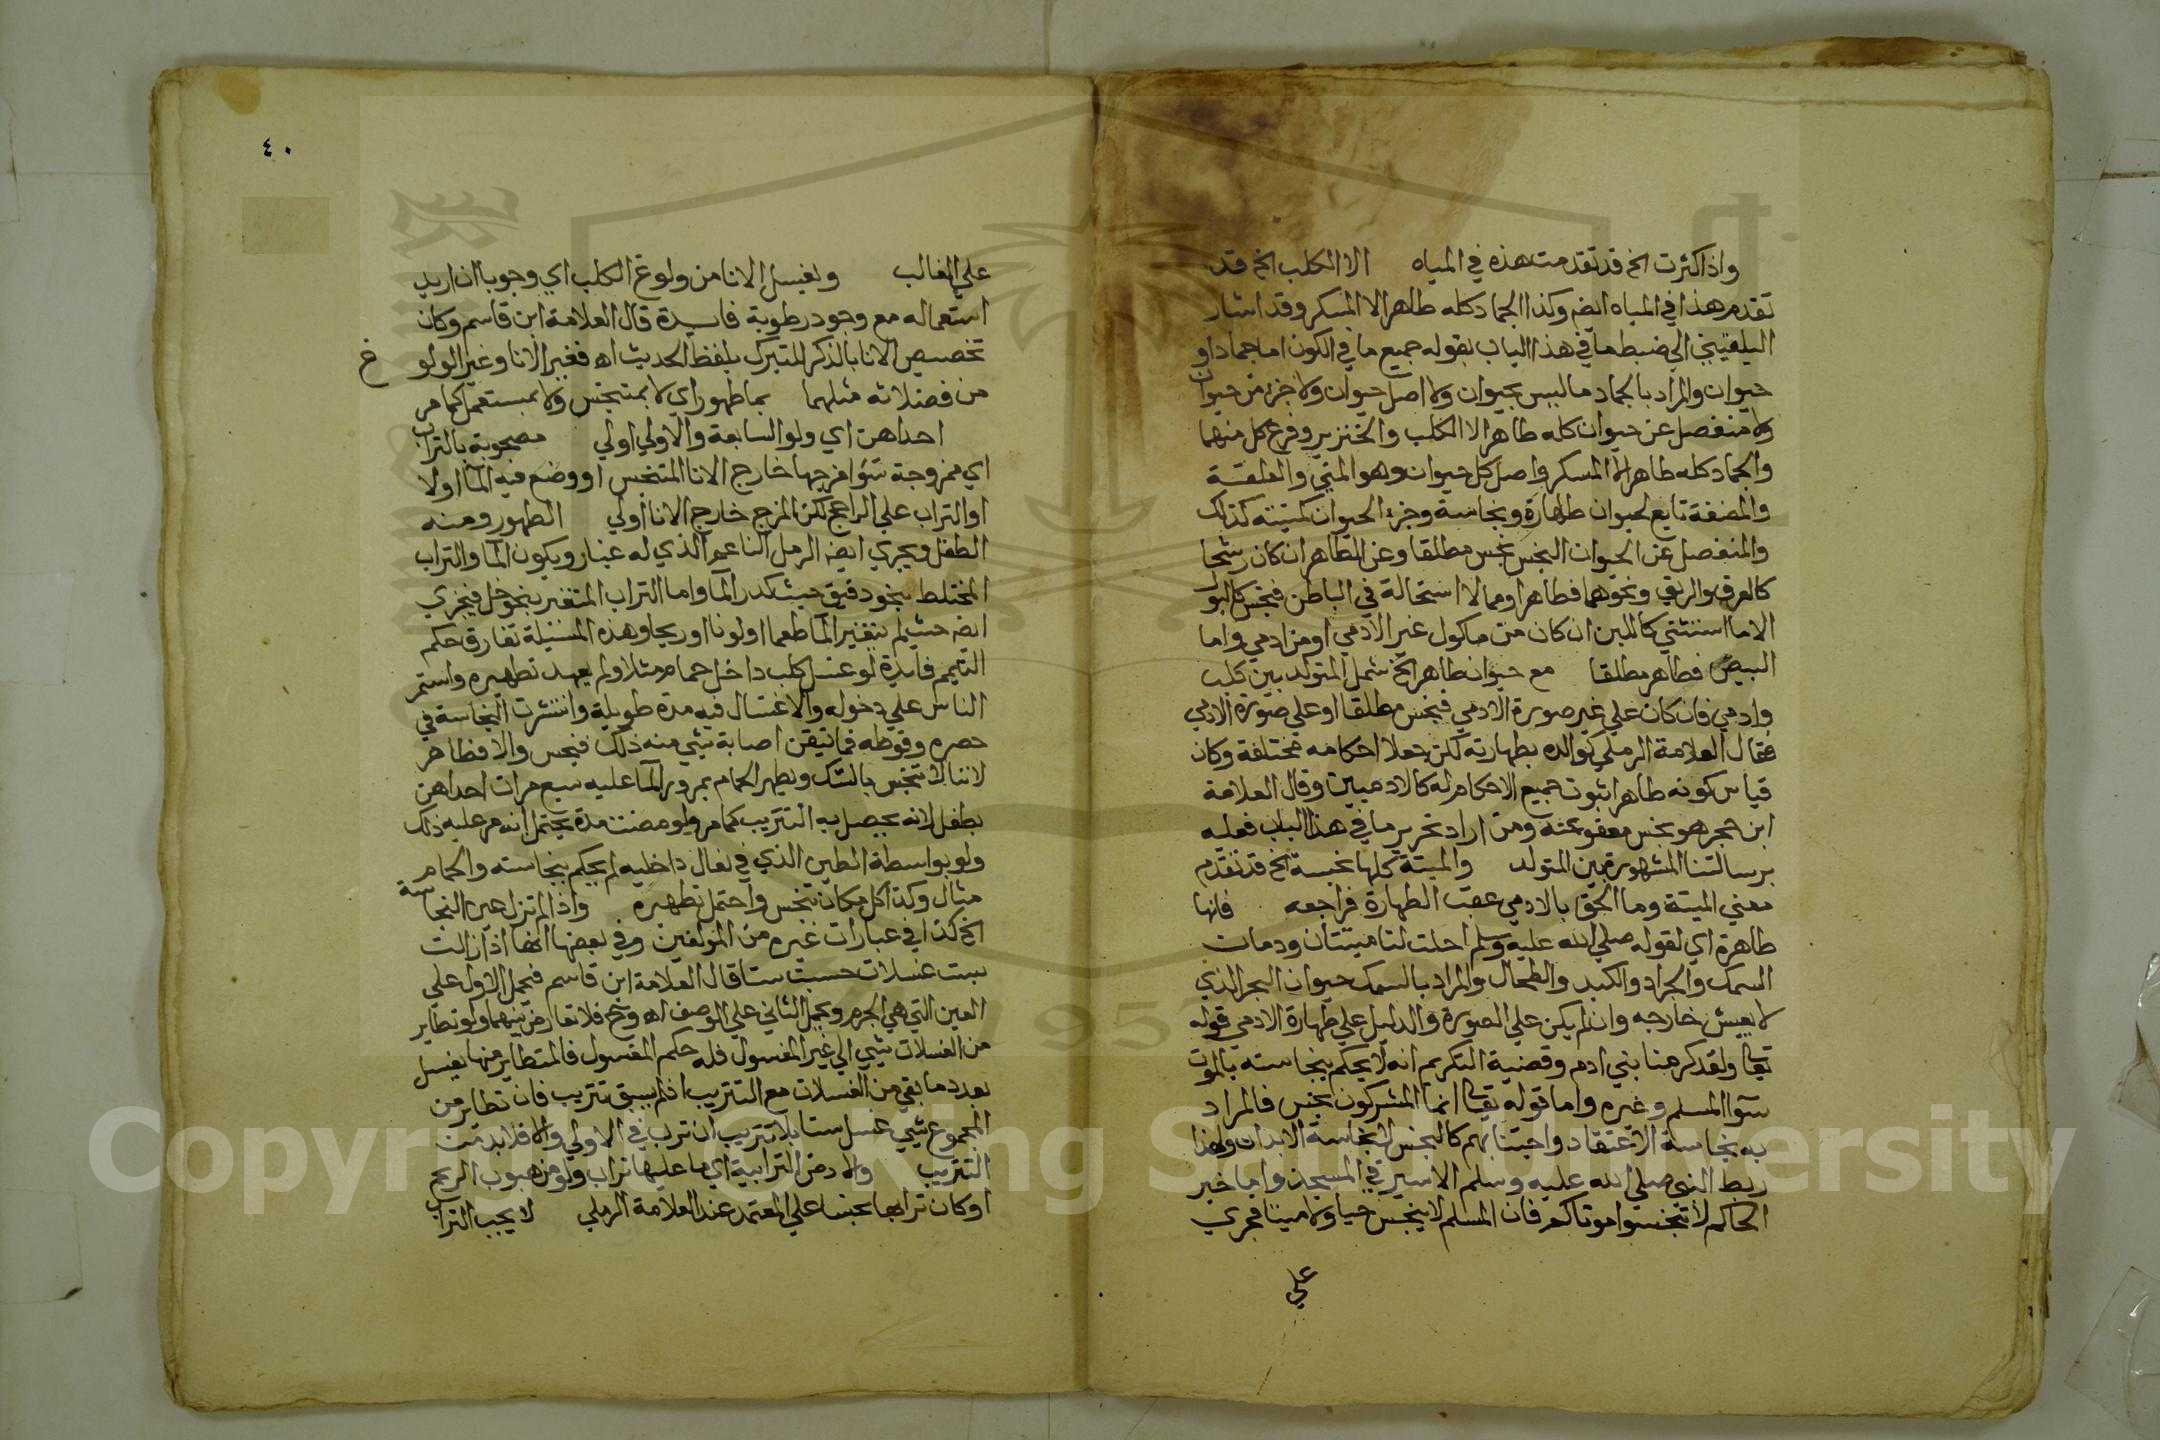 واذا كثرت الخ قد تقدمت هذه في المياه الا الكلب الخ قد
تقدم هذا في المياه ايضا وكذا الجماد كله طاهر الا المسكر وقد اشار
البلقيني الي ضبط ما في هذا الباب بقوله جميع ما في الكون اما جماد او
حيوان والمراد بالجماد ما ليس بحيوان ولا اصل حيوان ولا جزء من حيوان
ولا منفصل عن حيوان كله طاهر الا الكلب والخنزير وفرع كل منهما
والجماد كله طاهر الا المسكر واصل كل حيوان وهو المني والعلقة
والمضغة تابع لحيوان طهارة ونجاسة وجزء الحيوان كميتته كذلك
والمنفصل عن الحيوان النجس نجس مطلقا وعن الطاهر ان كان رشحا
كالعرق والريق ونحوهما فطاهر او مما لا استحالة في الباطن فنجس كالبول
الا ما استثني كاللبن ان كان من ماكول غير الادمي او من ادمي واما
البيض فطاهر مطلقا مع حيوان طاهر الخ شمل المتولد بين كلب
وادمي فان كان علي غير صورة الادمي فنجس مطلقا او علي صورة الادمي
فقال العلامة الرملي كوالده بطهارته لكن جعلا احكامه مختلفة وكان
قياس كونه طاهرا ثبوت جميع الاحكام له كالادميين وقال العلامة
ابن حجر هو نجس معفو عنه ومن اراد تحرير ما في هذا الباب فعليه
برسالتنا المشهورة بين المتولد والميتة كلها نجسة الخ قد تقدم
معني الميتة وما الحق بالادمي عقب الطهارة فراجعه فانها
طاهرة اي لقوله صلي الله عليه وسلم احلت لنا ميتتان ودمان
السمك والجراد والكبد والطحال والمراد بالسمك حيوان البحر الذي
لا يعيش خارجه وان لم يكن علي الصورة والدليل علي طهارة الادمي قوله
تعالي ولقد كرمنا بني ادم وقضية التكريم انه لا يحكم بنجاسته بالموت
سوا المسلم وغيره واما قوله تعالي انما المشركون نجس فالمراد
به نجاسة الاعتقاد واجتنابهم كالنجس لا نجاسة الابدان ولهذا
ربط النبي صلي الله عليه وسلم الاسير في المسجد واما خبر
الحاكم لا تنجسوا موتاكم فان المسلم لا ينجس حيا ولا ميتا فجري
علي
٤٠
علي الغالب ويغسل الانا من ولوغ الكلب اي وجوبا ان اريد
استعماله مع وجود رطوبة فايدة قال العلامة ابن قاسم وكان
تخصيص الانا بالذكر للتبرك بلفظ الحديث اه فغير الانا وغير الولوغ
من فضلاته مثلهما بما طهور اي لا بمتنجس ولا بمستعمل كما مر
احداهن اي ولو السابعة والاولي اولي مصحوبة بالتراب
اي ممزوجة سوا مزجها خارج الانا المتنجس او وضع فيه الما اولا
او التراب علي الراجح لكن المزج خارج الانا اولي الطهور ومنه
الطفل ويجزي ايضا الرمل الناعم الذي له غبار ويكون الما والتراب
المختلط بنحو دقيق حيث كدر الما واما التراب المتغير بنحو خل فيجزي
ايضا حيث لم يتغير الما طعما او لونا او ريحا وهذه المسئلة تفارق حكم
التيمم فايدة لو غسل كلب داخل حمام مثلا ولم يعهد تطهيره واستمر
الناس علي دخوله والاغتسال فيه مدة طويلة وانتشرت النجاسة في
حصره وفوطه فما تيقن اصابة شي منه ذلك فنجس والا فطاهر
لاننا لا ننجس بالشك ويطهر الحمام بمرور الما عليه سبع مرات احداهن
بطفل لانه يحصل به التتريب كما مر ولو مضت مدة يحتمل انه مر عليه ذلك
ولو بواسطة الطين الذي في نعال داخليه لم يحكم بنجاسته والحمام
مثال وكذا كل مكان تنجس واحتمل تطهيره واذا لم تزل عين النجاسة
الخ كذا في عبارات غيره من المولفين وفي بعضها انها اذا زالت
بست غسلات حسبت ستا قال العلامة ابن قاسم فيحمل الاول علي
العين التي هي الجرم ويحمل الثاني علي الوصف اه وحـ فلا تعارض بينهما ولو تطاير
من الغسلات شي الي غير المغسول فله حكم المغسول فالمتطاير منها يغسل
بعدد ما بقي من الغسلات مع التتريب اذا لم يسبق تتريب فان تطاير من
المجموع شي غسل ستا بلا تتريب ان ترب في الاولي والا فلا بد من
التتريب والارض الترابية اي ما عليها تراب ولو من هبوب الريح
او كان ترابها نجسا علي المعتمد عند العلامة الرملي لا يجب التراب